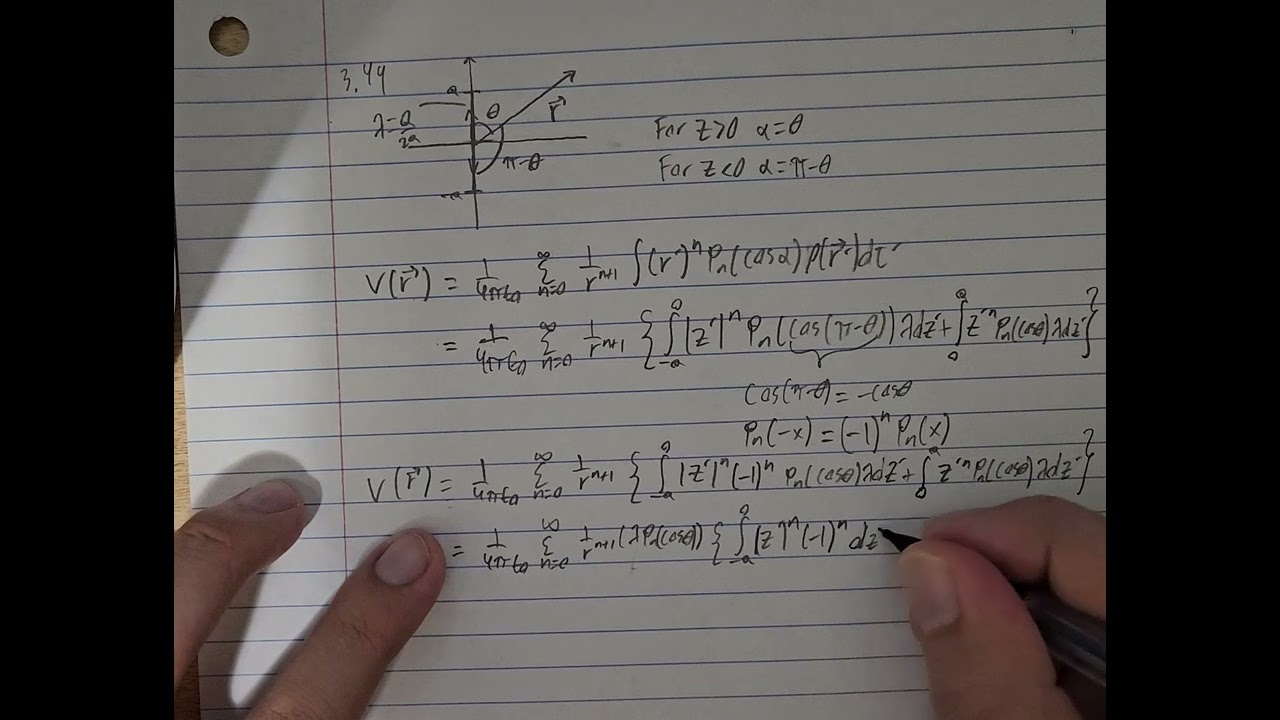 3.44
a
θ
r⃗
λ=Q/2a
π-θ
-a
For z>0 α=θ
For z<0 α=π-θ
V(r⃗) = 1/4πε₀ ∞Σn=0 1/rⁿ⁺¹ ∫(r')ⁿ Pₙ(cosα) ρ(r⃗')dτ'
= 1/4πε₀ ∞Σn=0 1/rⁿ⁺¹ { ∫₋ₐ⁰ |z'|ⁿ Pₙ(cos(π-θ)) λdz' + ∫₀ᵃ z'ⁿ Pₙ(cosθ) λdz' }
cos(π-θ) = -cosθ
Pₙ(-x) = (-1)ⁿ Pₙ(x)
V(r⃗) = 1/4πε₀ ∞Σn=0 1/rⁿ⁺¹ { ∫₋ₐ⁰ |z'|ⁿ (-1)ⁿ Pₙ(cosθ) λdz' + ∫₀ᵃ z'ⁿ Pₙ(cosθ) λdz' }
= 1/4πε₀ ∞Σn=0 1/rⁿ⁺¹ (λPₙ(cosθ)) { ∫₋ₐ⁰ |z'|ⁿ (-1)ⁿ dz'